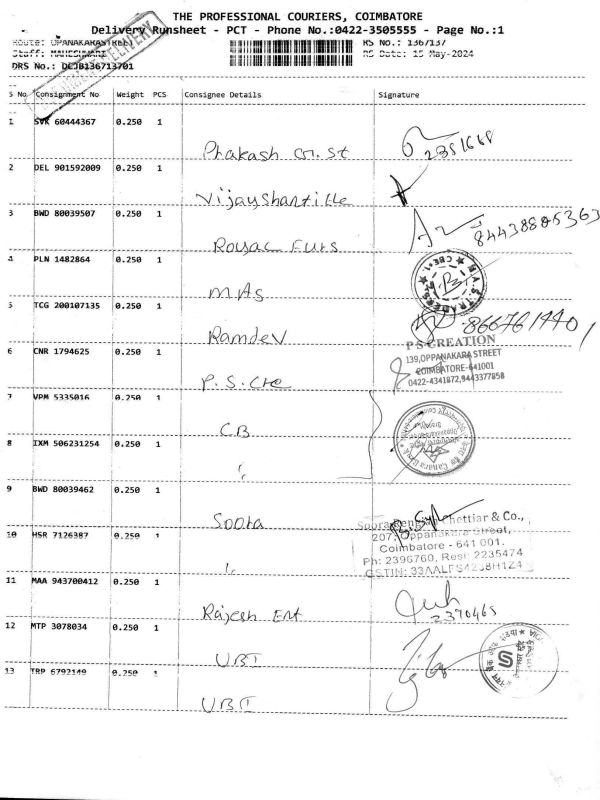 THE PROFESSIONAL COURIERS, COIMBATORE
Delivery Runsheet - PCT - Phone No.:0422-3505555 - Page No.:1
Route: OPPANAKARASTREET
Staff: MAHESHWARI
RS No.: 136713/
RS Date: 15 May-2024
DRS No.: DCJB136713701
DELIVERY
S No Consignment No Weight PCS Consignee Details Signature
1 SVK 60444367 0.250 1
Prakash const 2351668
2 DEL 901592009 0.250 1
Vijayshanti lle
3 BWD 80039507 0.250 1
Royal Furs
4 PLN 1482864 0.250 1
MAS
M.A.S TRADERS CBE-1
5 TCG 200107135 0.250 1
Ramdev
6 CNR 1794625 0.250 1
P.S. Cre
P S CREATION
139,OPPANAKARA STREET
COIMBATORE-641001
0422-4341872,9443377858
7 VPM 5335016 0.250 1
CB
8 IXM 506231254 0.250 1
"
9 BWD 80039462 0.250 1
Soora
10 HSR 7126387 0.250 1
"
Chettiar & Co.,
207, Oppanakara Street,
Coimbatore - 641 001.
Ph: 2396760, Resi: 2235474
11 MAA 943700412 0.250 1
Rajesh Ent 2370465
12 MTP 3078034 0.250 1
UBI
13 TRP 6792149 0.250 1
UBI